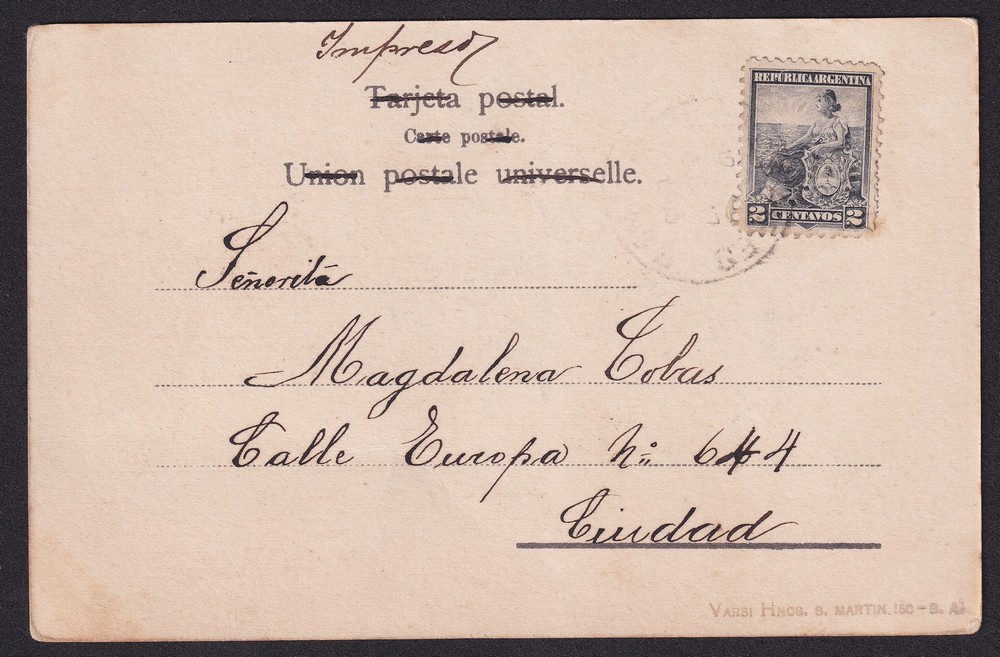 Impreso
Tarjeta postal.
Carte postale.
Union postale universelle.
REPÚBLICA ARGENTINA
2 CENTAVOS 2
Señorita
Magdalena Cobas
Calle Europa Nº 644
Ciudad
VARSI HNOS. S. MARTIN. 150 - B. AS